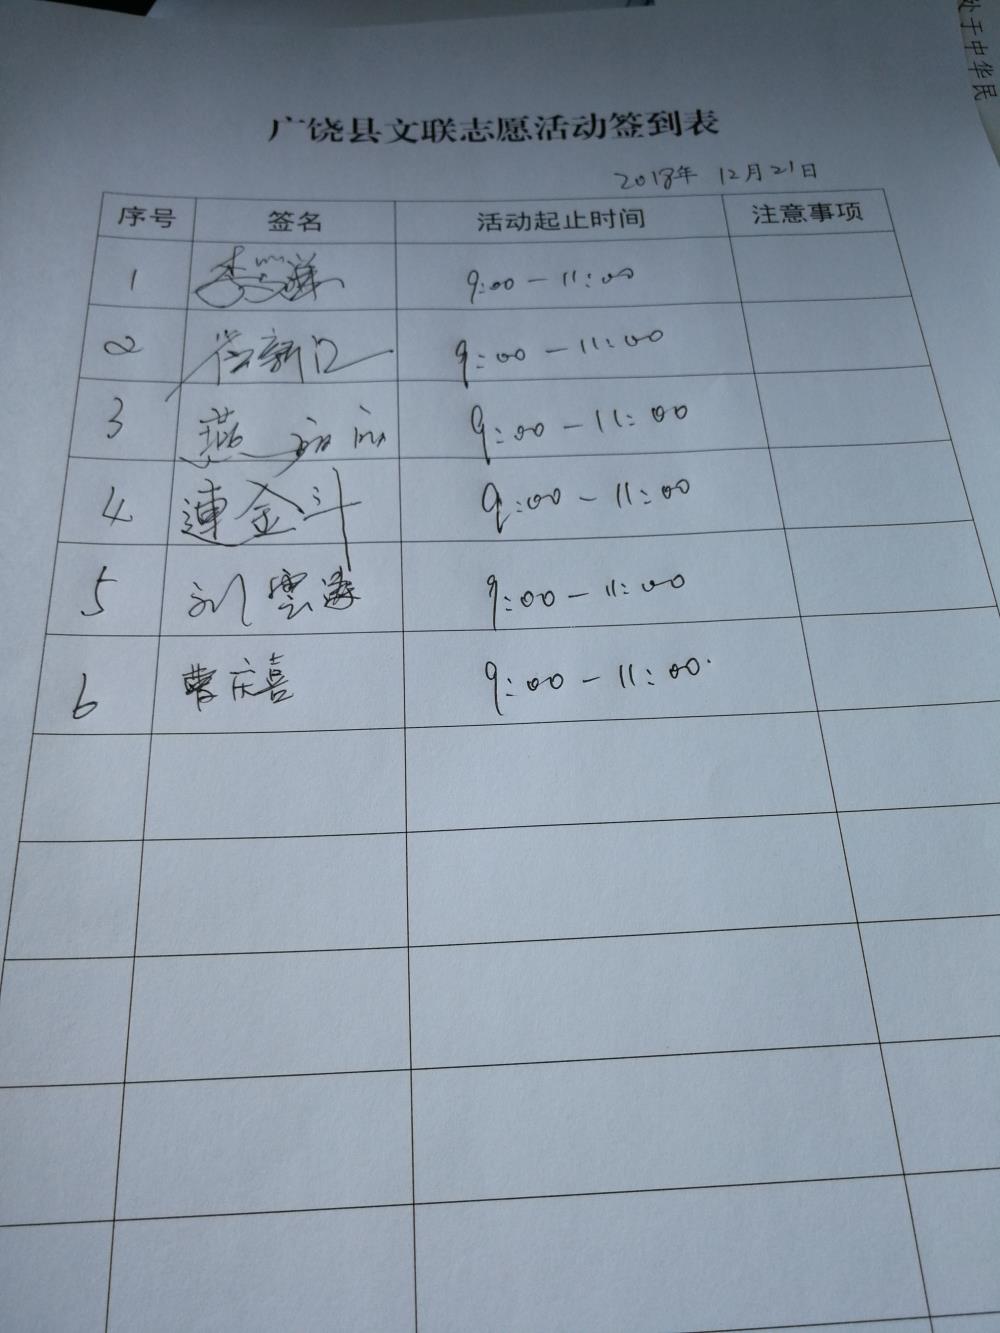 处于中华民
广饶县文联志愿活动签到表
2018年 12月21日
序号 签名 活动起止时间 注意事项
1 李 9:00-11:00
2 新 9:00-11:00
3 燕 9:00-11:00
4 連金斗 9:00-11:00
5 刘雲涛 9:00-11:00
6 曹庆喜 9:00-11:00